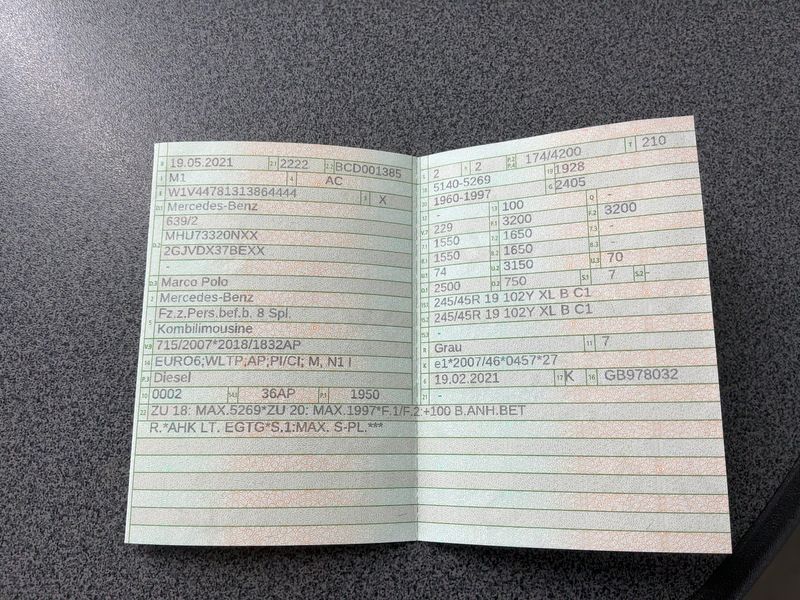 B 19.05.2021 2.1 2222 2.2 BCD001385
J M1 4 AC
E W1V44781313864444 3 X
D.1 Mercedes-Benz
639/2
MHU73320NXX
D.2 2GJVDX37BEXX
-
D.3 Marco Polo
2 Mercedes-Benz
5 Fz.z.Pers.bef.b. 8 Spl.
Kombilimousine
V.9 715/2007*2018/1832AP
14 EURO6;WLTP;AP;PI/CI; M, N1 I
P.3 Diesel
10 0002 14.1 36AP P.1 1950
22 ZU 18: MAX.5269*ZU 20: MAX.1997*F.1/F.2:+100 B.ANH.BET
R.*AHK LT. EGTG*S.1:MAX. S-PL.***
L 2 9 2 P.2 P.4 174/4200 T 210
18 5140-5269 19 1928
20 1960-1997 G 2405
12 - 13 100 Q -
V.7 229 F.1 3200 F.2 3200
7.1 1550 7.2 1650 7.3 -
8.1 1550 8.2 1650 8.3 -
U.1 74 U.2 3150 U.3 70
O.1 2500 O.2 750 S.1 7 S.2 -
15.1 245/45R 19 102Y XL B C1
15.2 245/45R 19 102Y XL B C1
15.3 -
R Grau 11 7
K e1*2007/46*0457*27
6 19.02.2021 17 K 16 GB978032
21 -